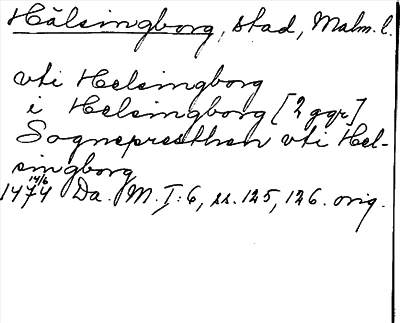 Hälsingborg, stad, Malm. l.
vti Helsingborg
i Helsingborg [2 ggr]
Sognepresthen vti Hel-
singborg
1474 14/6 Da. M. I: 6, ss. 125, 126. orig.